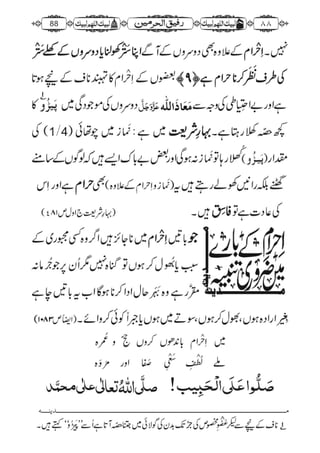 ۸۸ لبیک اللھم لبیک رفیق الحرمین لبیک اللھم لبیک 88
ہیں۔ اِحْرَام کے علاوہ بھی دوسروں کے آگے اپنا سِتْر کھولنا یا دوسروں کے کھلے سِتْر
کی طرف نظر کرنا حرام ہے ﴿۹﴾ بعضوں کے اِحْرَام کا تہبند ناف کے نیچے ہوتا
ہے اور بے احتیاطی کی وجہ سے مَعَاذَاللہ عَزَّوَجَلَّ دوسروں کی موجودگی میں پَیڑُو کا
کچھ حصّہ کھلا رہتا ہے۔ بہارِ شریعت میں ہے: نماز میں چوتھائی (1/4) کی
مقدار (پَیڑُو) کھلا رہا تو نماز نہ ہوگی اور بعض بے باک ایسے ہیں کہ لوگوں کے سامنے
گھٹنے بلکہ رانیں کھولے رہتے ہیں یہ (نماز و اِحرام کے علاوہ) بھی حرام ہے اور اس
کی عادت ہے تو فاسق ہیں۔ (بہارِ شریعت ج اول ص ۴۸۱)
اِحْرَام کے بارے میں ضروری تنبیہ
جو باتیں اِحْرَام میں ناجائز ہیں وہ اگر کسی مجبوری کے
سبب یا بھول کر ہوں تو گناہ نہیں مگر ان پر جو جرمانہ
مقرّر ہے وہ بہرحال ادا کرنا ہوگا اب یہ باتیں چاہے
بغیر ارادہ ہوں، بھول کر ہوں، سوتے میں ہوں یا جبراً کوئی کروائے۔ (ایضاً ص ۱۰۸۳)
میں اِحْرَام باندھوں کروں حج و عمرہ
ملے لُطْفِ سَعْیِ صَفا اور مَروَہ
صَلُّوا عَلَی الْحَبِیب! صلَّی اللہُ تعالٰی علٰی محمَّد